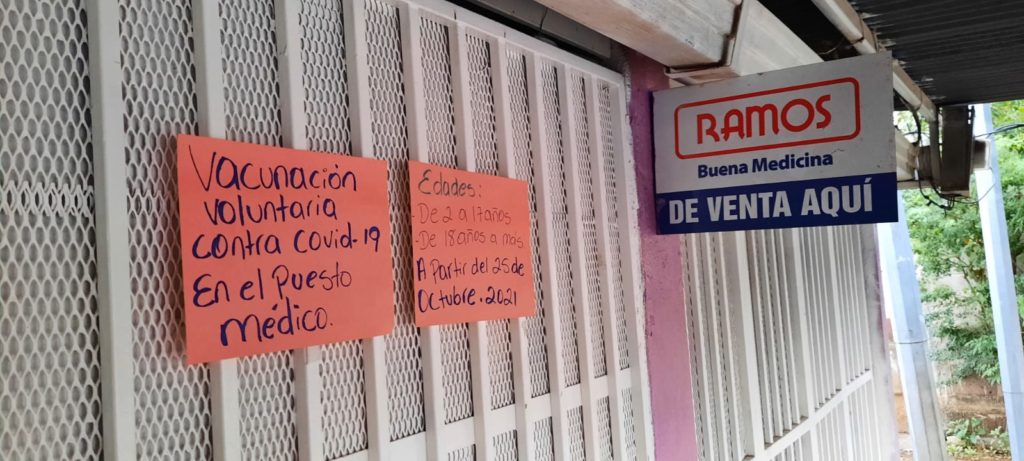 Vacunación
voluntaria
contra covid-19
En el Puesto
médico.
Edades:
-De 2 a 17 años
-De 18 años a más
A Partir del 25 de
Octubre. 2021
RAMOS
Buena Medicina
DE VENTA AQUÍ